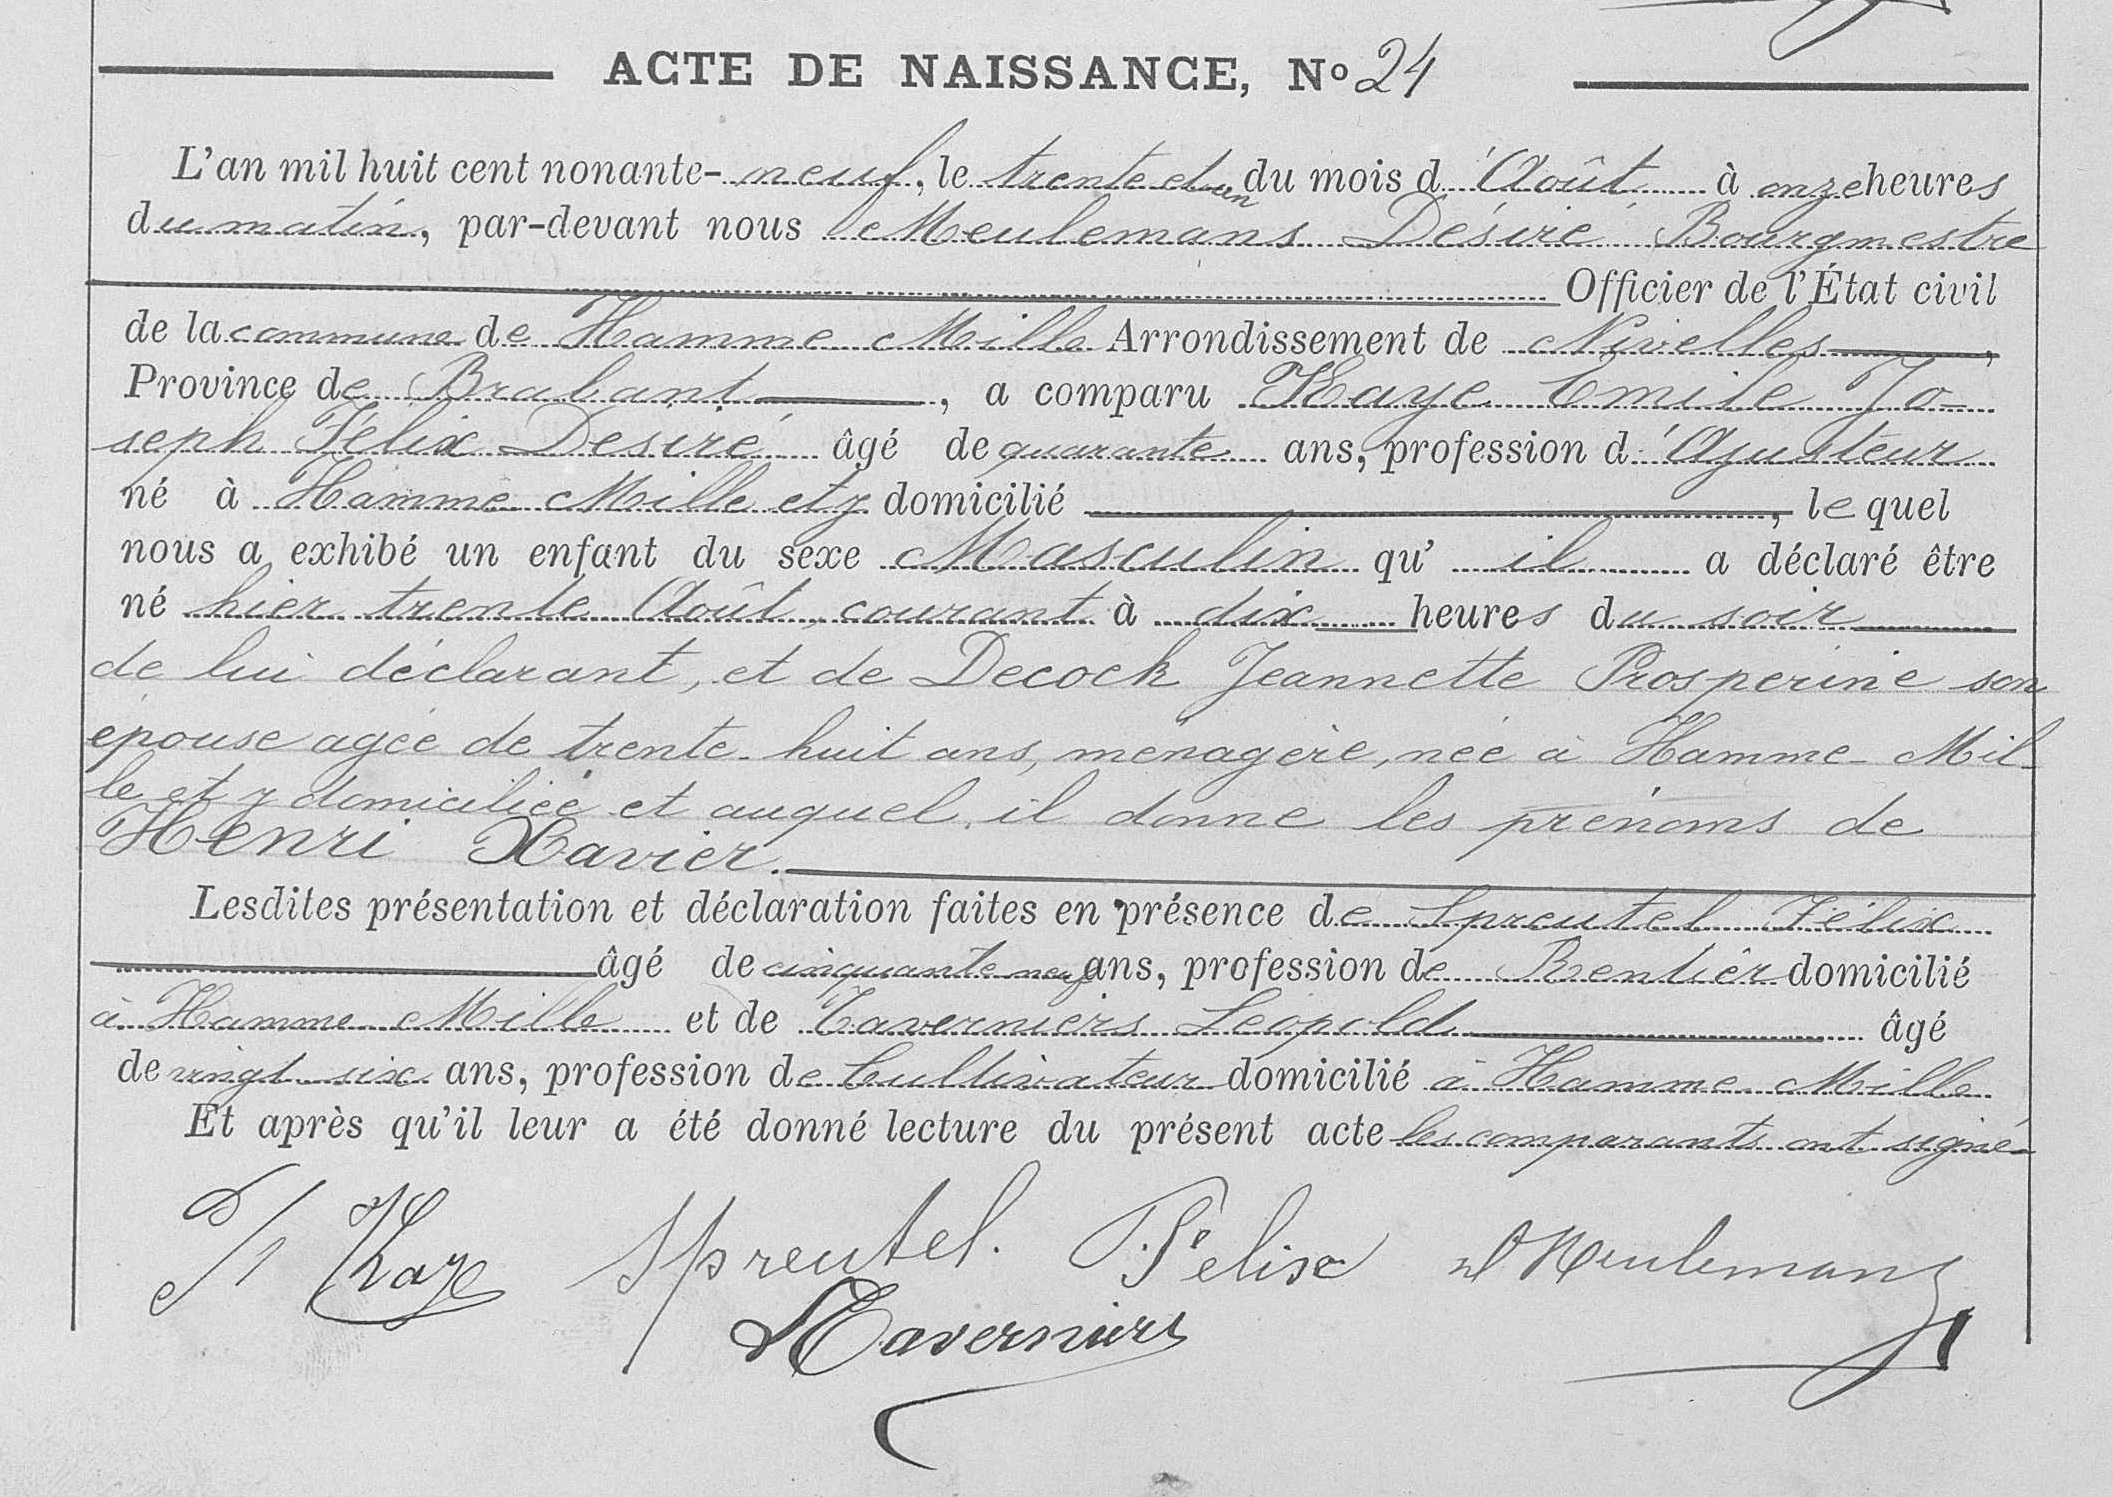 ACTE DE NAISSANCE, No 24
L'an mil huit cent nonante-neuf, le trente et un du mois d'Août à onze heures
du matin, par-devant nous Meulemans Désiré Bourgmestre
Officier de l'État civil
de la commune de Hamme Mille Arrondissement de Nivelles,
Province de Brabant, a comparu Kaye Emile Jo-
seph Félix Desiré âgé de quarante ans, profession d'Ajusteur
né à Hamme Mille et y domicilié, lequel
nous a exhibé un enfant du sexe Masculin qu'il a déclaré être
né hier trente Août courant à dix heures du soir
de lui déclarant, et de Decock Jeannette Prosperine son
épouse agée de trente-huit ans, ménagère, née à Hamme-Mil-
le et y domiciliée et auquel il donne les prénoms de
Henri Xavier.
Lesdites présentation et déclaration faites en présence de Spreutel Félix
âgé de cinquante neuf ans, profession de Rentier domicilié
à Hamme Mille et de Taverniers Léopold âgé
de vingt six ans, profession de Cultivateur domicilié à Hamme Mille
Et après qu'il leur a été donné lecture du présent acte les comparants ont signé
Kaye Spreutel. Félix D Meulemans
L Taverniers